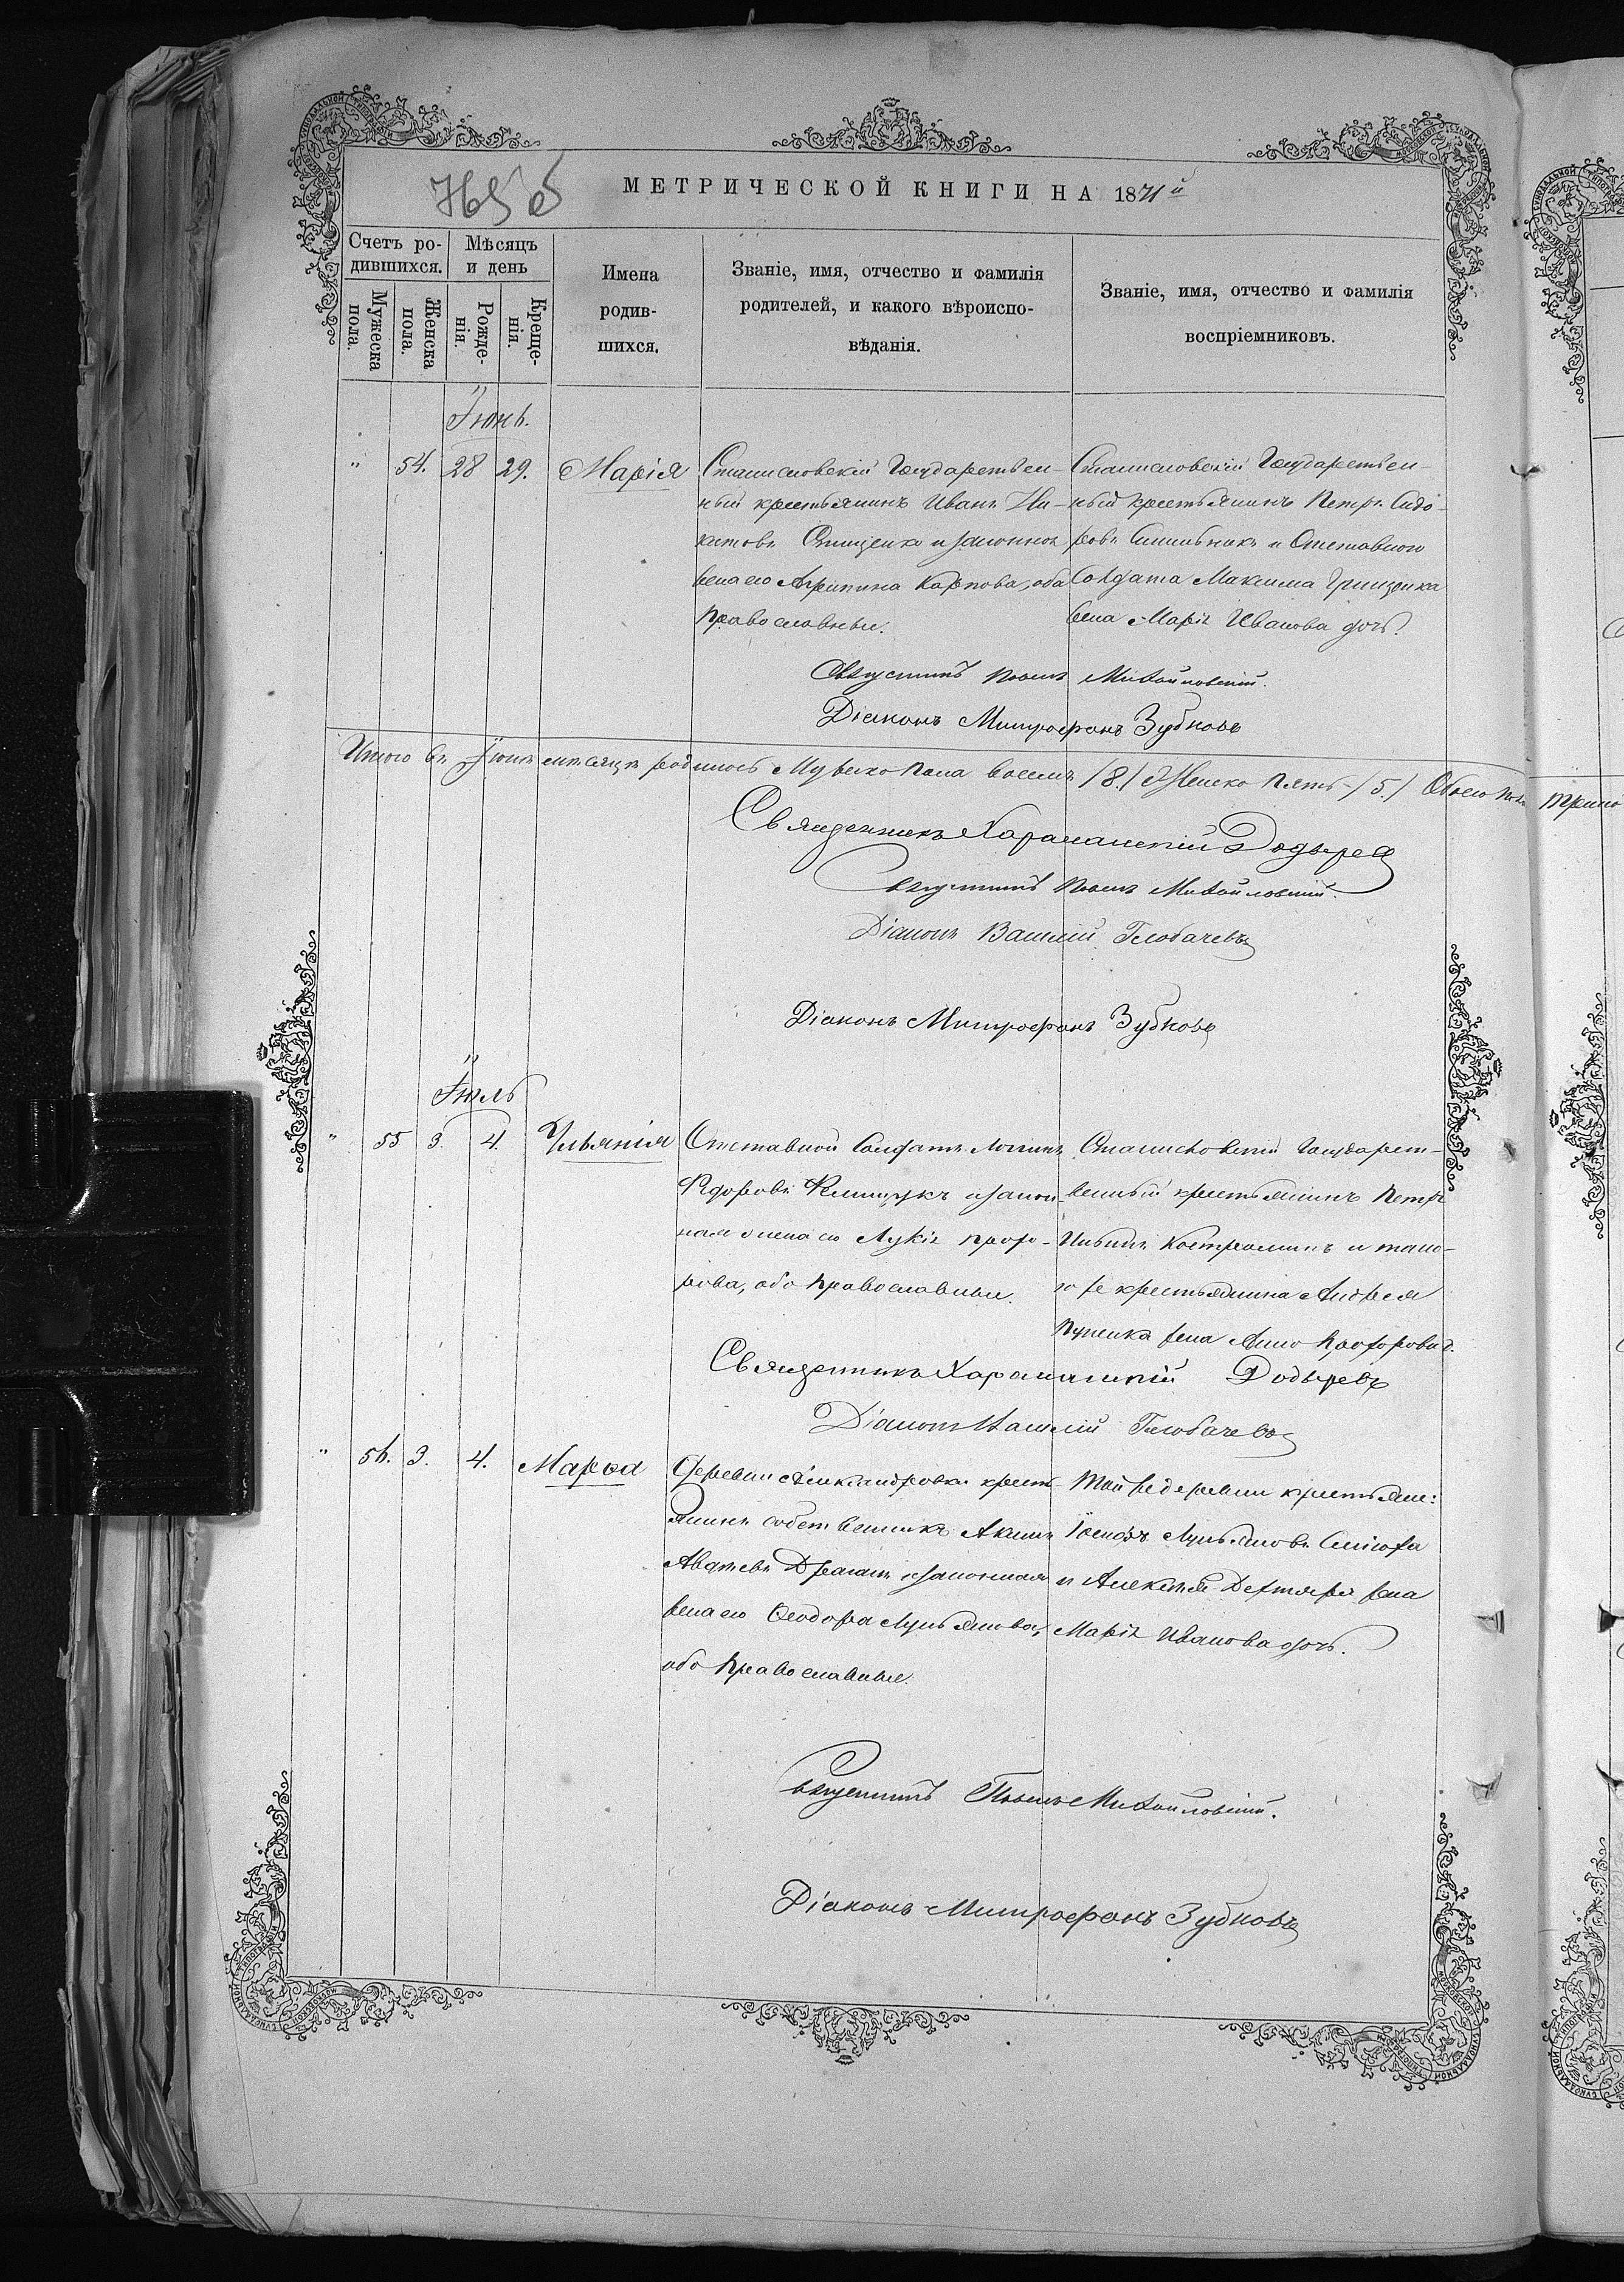 МЕТРИЧЕСКОЙ КНИГИ НА 1871й
Счетъ ро-
дившихся.
Мѣсяцъ
и день
Мужеска
пола.
Женска
пола.
Рожде-
нія.
Креще-
нія.
Имена
родив-
шихся.
Званіе, имя, отчество и фамилія
родителей, и какого вѣроиспо-
вѣданія.
Званіе, имя, отчество и фамилія
воспріемниковъ.
Іюнь.
" 54. 28 29. Марія
Станиславскій Государствен-
ный крестьянинъ Иванъ Ни-
китовъ Онищенко и законная
жена его Агрипина Карпова, оба
Православные.
Станиславскій Государствен-
ный крестьянинъ Петръ Сидо-
ровъ и Отставного
Солдата Максима Грищенка
жена Марія Иванова дочь.
Августинъ Михайловскій.
Діаконъ Митрофанъ Зубковъ
Итого въ Іюнѣ мѣсяцѣ родилось Мужеско пола восемь /8./ Женско Пять /5./ Обоего пола трина
Священникъ Харлампій
Августинъ Михайловскій.
Діаконъ Василій Глобачевъ
Діаконъ Митрофанъ Зубковъ
Іюль
" 55 3. 4. Ульянія
Отставной Солдатъ Логинъ
Федоровъ и закон-
ная жена его Лукія Прохо-
рова, оба Православные.
Станиславскій Государст-
венный крестьянинъ Петръ
Костроминъ и тако-
го же крестьянина Андрея
жена Анна Прохорова д.
Священникъ Харлампій
Діаконъ Василій Глобачевъ
" 56. 3. 4. Марѳа
Деревни Александровки крест-
янинъ собственникъ Акимъ
Авдѣевъ Драганъ и законная
жена его Ѳеодора Лукьянова,
оба Православные.
Той же деревни крестьяне:
Іосифъ Лукьяновъ
и Алексѣя Дехтяря жена
Марія Иванова дочь.
Августинъ Михайловскій.
Діаконъ Митрофанъ Зубковъ